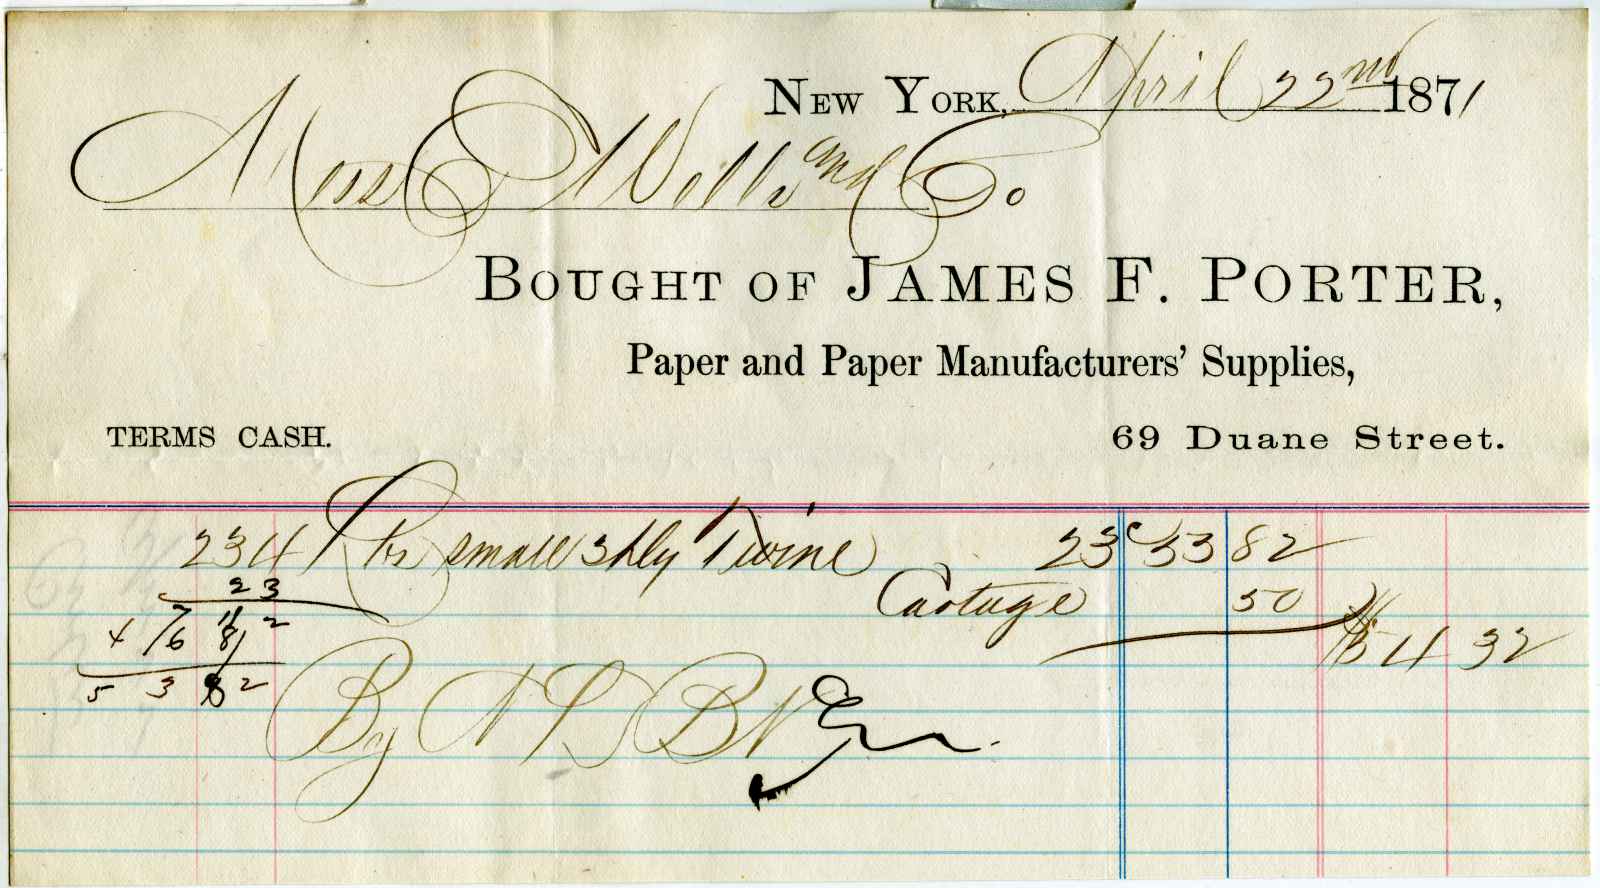 New York, April 22nd 1871
Mess E Wells and Co
Bought of James F. Porter,
Paper and Paper Manufacturers' Supplies,
TERMS CASH. 69 Duane Street.
234 small 3 ply Twine 23c 53 82
23
Cartage 50
7 11 2
4 6 8
54 32
5 3 8 2
By N